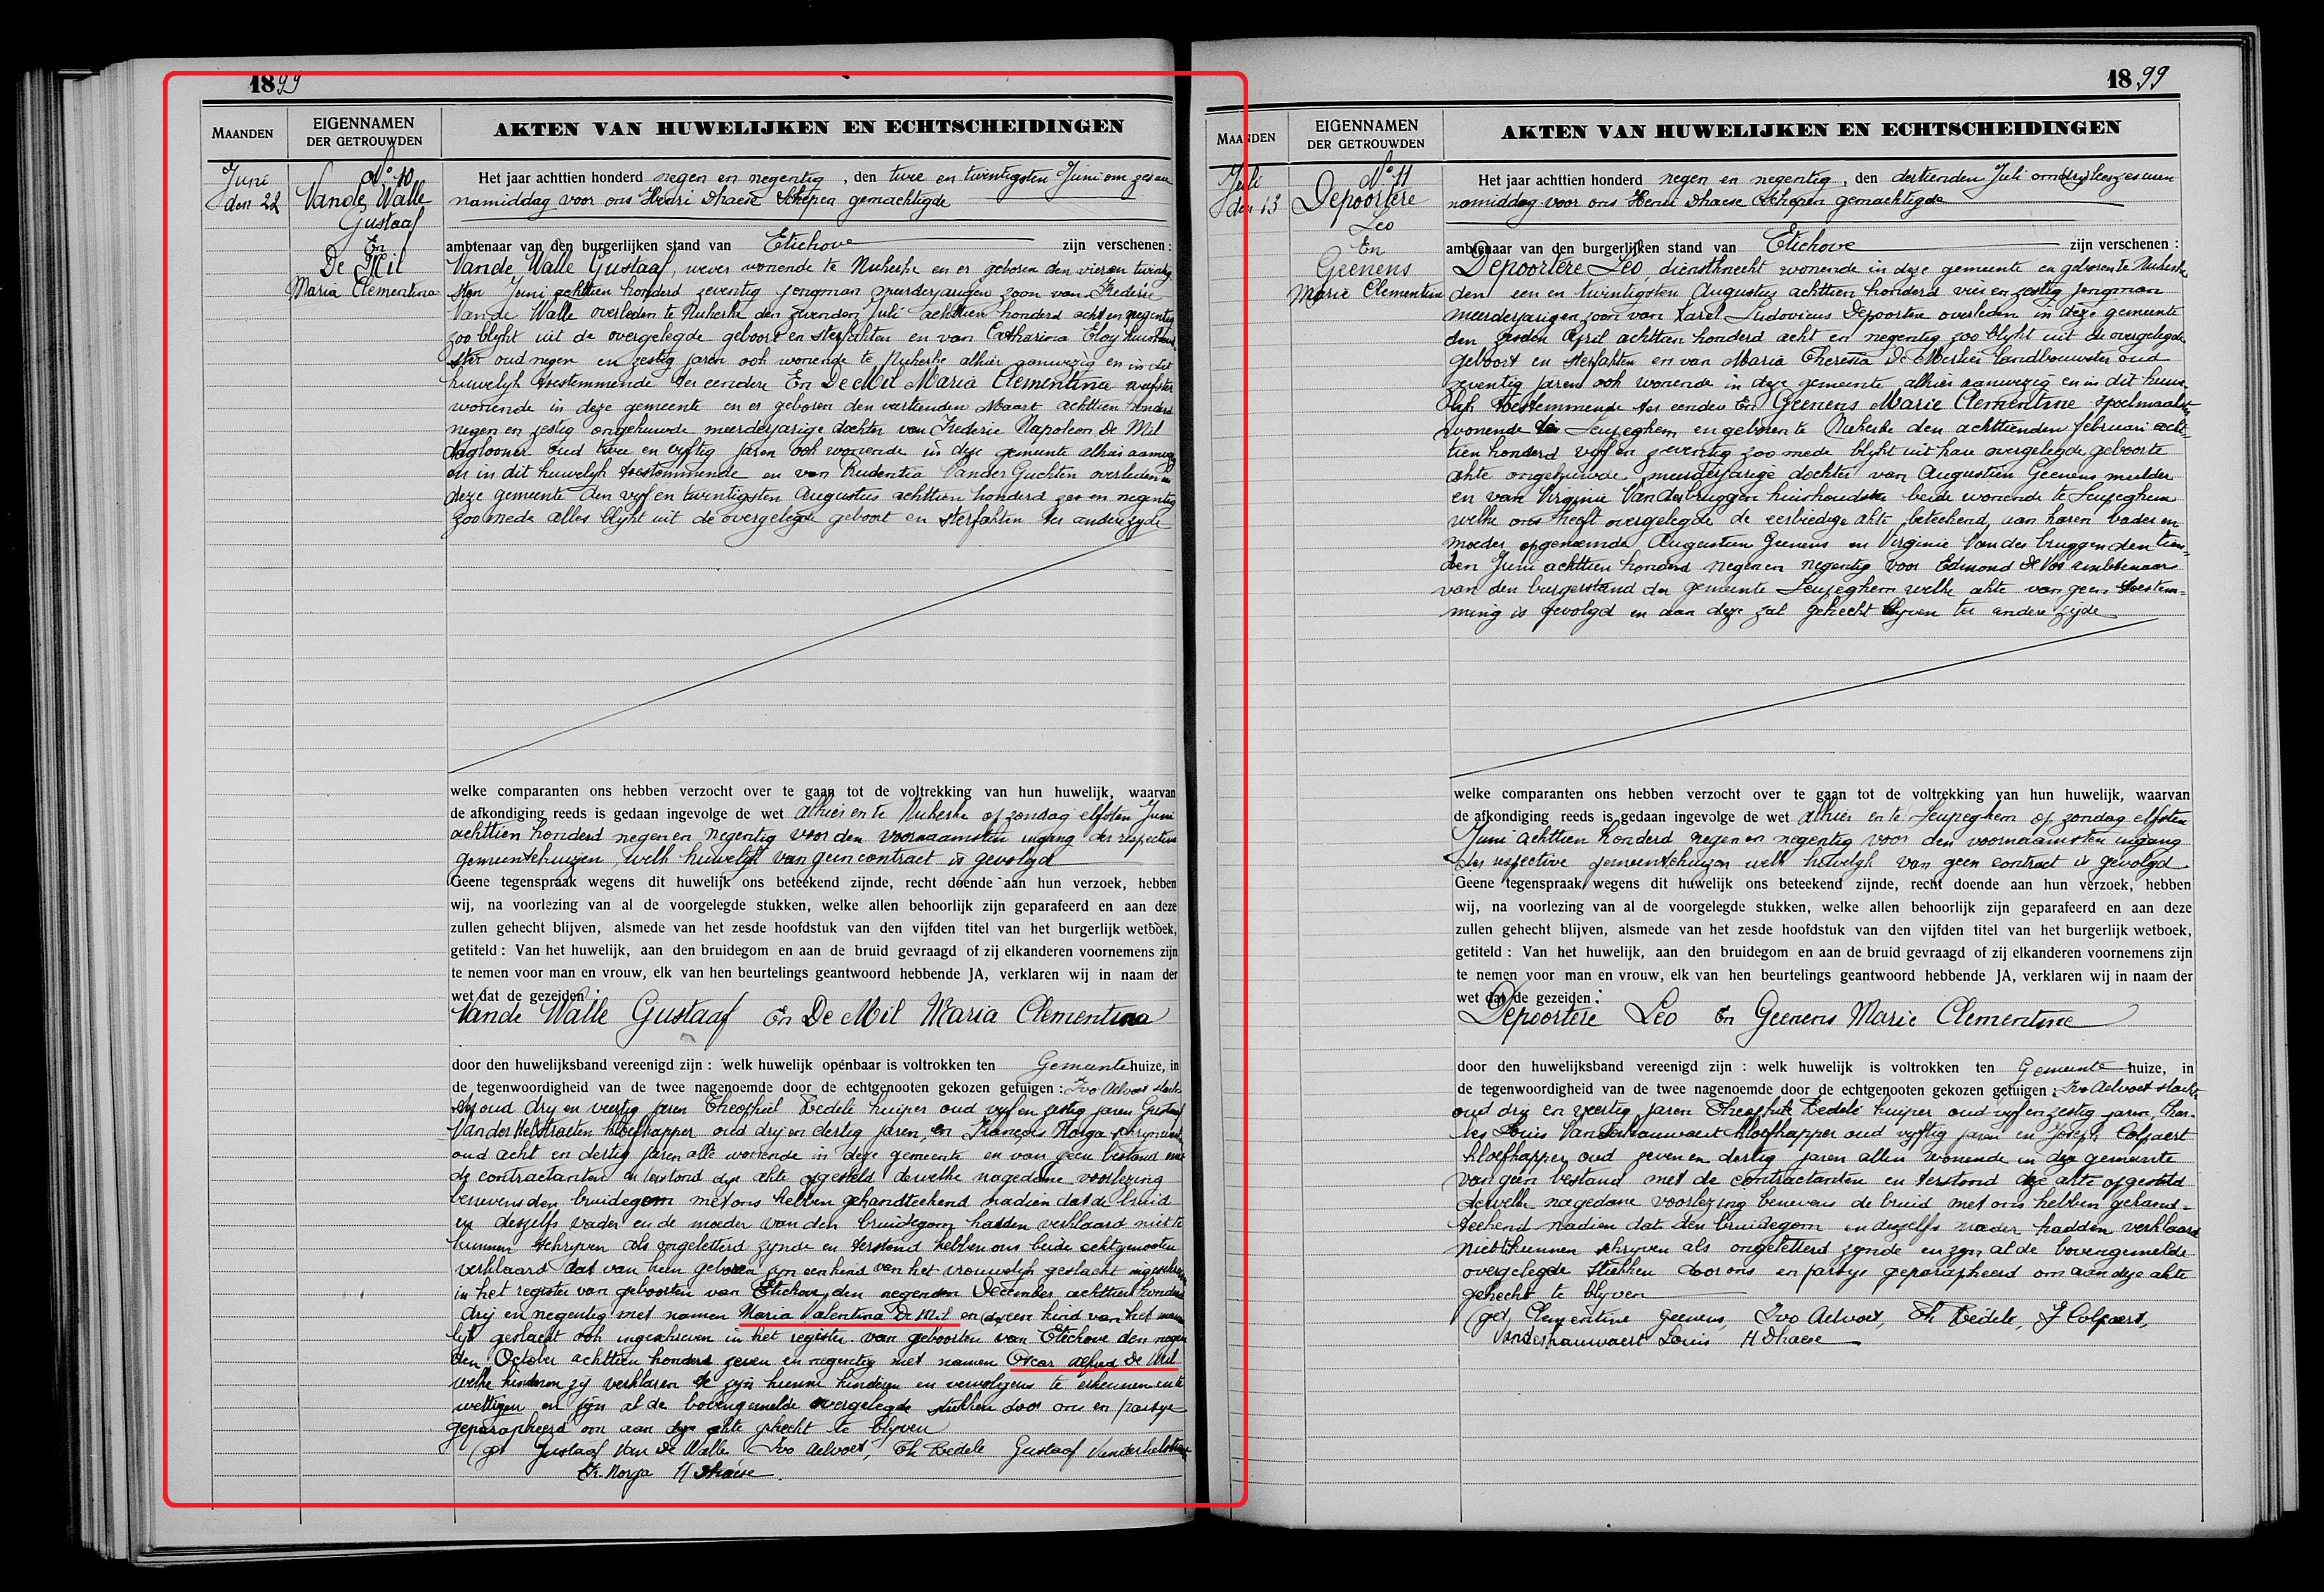 1899
MAANDEN
EIGENNAMEN
DER GETROUWDEN
AKTEN VAN HUWELIJKEN EN ECHTSCHEIDINGEN
Juni
den 22
No 10
Vande Walle
Gustaaf
En
De Mil
Maria Clementina
Het jaar achttien honderd negen en negentig, den twee en twintigsten Juni om zes ure
namiddag voor ons Henri Dhaese Schepen gemachtigde
ambtenaar van den burgerlijken stand van Etichove zijn verschenen :
Vande Walle Gustaaf, wever wonende te Nukerke en er geboren den vier en twintig
sten Juni achttien honderd zeventig jongman meerderjarigen zoon van Frederic
Vande Walle overleden te Nukerke den Juli achttien honderd acht en negentig
zoo blijkt uit de overgelegde geboort en sterfakten en van Catharina Eloy huishoud
ster oud negen en zestig jaren ook wonende te Nukerke alhier aanwezig en in dit
huwelijk toestemmende ter eendere En De Mil Maria Clementina
wonende in deze gemeente en er geboren den veertienden Maart achttien honderd
negen en zestig ongehuwde meerderjarige dochter van Frederic Napoleon De Mil
daglooner oud twee en vijftig jaren ook wonende in deze gemeente alhier aanwezig
en in dit huwelijk toestemmende en van Prudentia Vander Guchten overleden in
deze gemeente den vijf en twintigsten Augustus achttien honderd zes en negentig
zoo mede alles blijkt uit de overgelegde geboort en sterfakten ter andere zijde
welke comparanten ons hebben verzocht over te gaan tot de voltrekking van hun huwelijk, waarvan
de afkondiging reeds is gedaan ingevolge de wet alhier en te Nukerke op zondag elfsten Juni
achttien honderd negen en negentig voor den voornaamsten ingang der respectieve
gemeentehuizen, welk huwelijk van geen contract is gevolgd
Geene tegenspraak wegens dit huwelijk ons beteekend zijnde, recht doende aan hun verzoek, hebben
wij, na voorlezing van al de voorgelegde stukken, welke allen behoorlijk zijn geparafeerd en aan deze
zullen gehecht blijven, alsmede van het zesde hoofdstuk van den vijfden titel van het burgerlijk wetboek,
getiteld : Van het huwelijk, aan den bruidegom en aan de bruid gevraagd of zij elkanderen voornemens zijn
te nemen voor man en vrouw, elk van hen beurtelings geantwoord hebbende JA, verklaren wij in naam der
wet dat de gezeiden :
Vande Walle Gustaaf En De Mil Maria Clementina
door den huwelijksband vereenigd zijn : welk huwelijk openbaar is voltrokken ten Gemeentehuize, in
de tegenwoordigheid van de twee nagenoemde door de echtgenooten gekozen getuigen : Ivo Aelvoet
oud drij en veertig jaren Theophiel Bedele kuiper oud vijf en zestig jaren Gustaaf
Vanderhelstraeten kloefkapper oud drij en dertig jaren, en François Norga schrijnwerker
oud acht en dertig jaren alle wonende in deze gemeente en van geen bestand met
de contractanten en terstond deze akte opgesteld dewelke nagedane voorlezing
benevens den bruidegom met ons hebben gehandteekend nadien dat de bruid
en deszelfs vader en de moeder van den bruidegom hadden verklaard niet te
kunnen schrijven als ongeletterd zijnde en terstond hebben ons beide echtgenooten
verklaard dat van hun geboren zijn een kind van het vrouwelijk geslacht ingeschreven
in het register van geboorten van Etichove den negenden December achttien honderd
drij en negentig met namen Maria Valentina De Mil en een kind van het manne
lijk geslacht ook ingeschreven in het register van geboorten van Etichove den negen
den October achttien honderd zeven en negentig met namen Oscar Alfred De Mil
welke kinderen zij verklaren te zijn hunne kinderen en vervolgens te erkennen en te
wettigen en zijn al de bovengemelde overgelegde stukken door ons en partije
geparapheerd om aan deze akte gehecht te blijven
(get Gustaaf Van De Walle Ivo Aelvoet, Th Bedele Gustaaf Vanderhelstraeten
Fr. Norga H Dhaese
1899
MAANDEN
EIGENNAMEN
DER GETROUWDEN
AKTEN VAN HUWELIJKEN EN ECHTSCHEIDINGEN
Juli
den 13
No 11
Depoortere
Leo
En
Geenens
Marie Clementine
Het jaar achttien honderd negen en negentig, den dertienden Juli om zes uren
namiddag voor ons Henri Dhaese Schepen gemachtigde
ambtenaar van den burgerlijken stand van Etichove zijn verschenen :
Depoortere Leo dienstknecht wonende in deze gemeente en geboren te Nukerke
den een en twintigsten Augustus achttien honderd vier en zestig jongman
meerderjarigen zoon van Karel Ludovicus Depoortere overleden in deze gemeente
den zesden April achttien honderd acht en negentig zoo blijkt uit de overgelegde
geboort en sterfakten en van Maria Theresia De Merlier landbouwster oud
zeventig jaren ook wonende in deze gemeente alhier aanwezig en in dit huwe-
lijk toestemmende ter eendere En Geenens Marie Clementine spoelmaakster
wonende te Leupeghem en geboren te Nukerke den achttienden februari acht-
tien honderd vijf en zeventig zoo mede blijkt uit hare overgelegde geboorte
akte ongehuwde meerderjarige dochter van Augustien Geenens mulder
en van Virginie Vanderbruggen huishoudster beide wonende te Leupeghem
welke ons heeft overgelegde de eerbiedige akte beteekend, aan haren vader en
moeder opgenoemde Augustien Geenens en Virginie Vanderbruggen den tien-
den Juni achttien honderd negen en negentig voor Edmond De Vos ambtenaar
van den burgerstand der gemeente Leupeghem welke akte van geen toestem-
ming is gevolgd en aan deze zal gehecht blijven ter andere zijde
welke comparanten ons hebben verzocht over te gaan tot de voltrekking van hun huwelijk, waarvan
de afkondiging reeds is gedaan ingevolge de wet alhier en te Leupeghem op zondag elfsten
Juni achttien honderd negen en negentig voor den voornaamsten ingang
der respective gemeentehuizen welk huwelijk van geen contract is gevolgd
Geene tegenspraak wegens dit huwelijk ons beteekend zijnde, recht doende aan hun verzoek, hebben
wij, na voorlezing van al de voorgelegde stukken, welke allen behoorlijk zijn geparafeerd en aan deze
zullen gehecht blijven, alsmede van het zesde hoofdstuk van den vijfden titel van het burgerlijk wetboek,
getiteld : Van het huwelijk, aan den bruidegom en aan de bruid gevraagd of zij elkanderen voornemens zijn
te nemen voor man en vrouw, elk van hen beurtelings geantwoord hebbende JA, verklaren wij in naam der
wet dat de gezeiden :
Depoortere Leo En Geenens Marie Clementine
door den huwelijksband vereenigd zijn : welk huwelijk is voltrokken ten Gemeente huize, in
de tegenwoordigheid van de twee nagenoemde door de echtgenooten gekozen getuigen : Ivo Aelvoet
oud drij en veertig jaren Theophile Bedele kuiper oud vijf en zestig jaren, Char-
les Louis Vanderhauwaert kloefkapper oud vijftig jaren en Joseph Colpaert
kloefkapper oud zeven en dertig jaren allen wonende in deze gemeente
van geen bestand met de contractanten en terstond deze akte opgesteld
dewelke nagedane voorlezing benevens de bruid met ons hebben gehand-
teekend nadien dat den bruidegom en deszelfs moeder hadden verklaard
niet te kunnen schrijven als ongeletterd zijnde en zijn al de bovengemelde
overgelegde stukken door ons en partije geparapheerd om aan deze akte
gehecht te blijven
(get, Clementine Geenens, Ivo Aelvoet, Th Bedele, J Colpaert,
Vanderhauwaert Louis H Dhaese